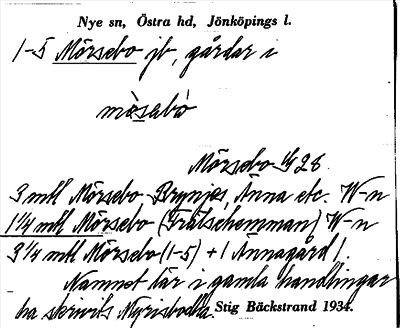 Nye sn, Östra hd, Jönköpings l.
1-5 Mörsebo jb, gårdar i
mòsabò
Mörsebo 28
3 mtl Mörsebo Brynjas, Anna etc. W-n
1 1/4 mtl Mörsebo (Frälsehemman) W-n
3 1/4 mtl Mörsebo (1-5) + 1 Annagård 1.
Namnet lär i gamla handlingar
ha skrivits Myrisbodha. Stig Bäckstrand 1934.